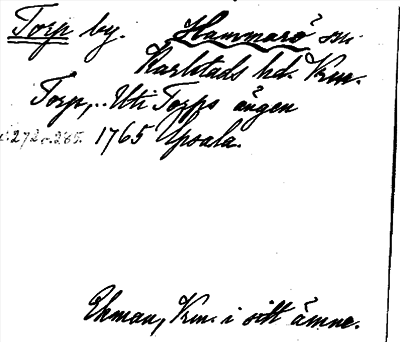 Torp by. Hammarö sn.
Karlstads hd. Vrm.
Torp, .. Uti Torps ängen
s. 272 o. 265. 1765 Upsala.
Ekman, Vrm. i sitt ämne.